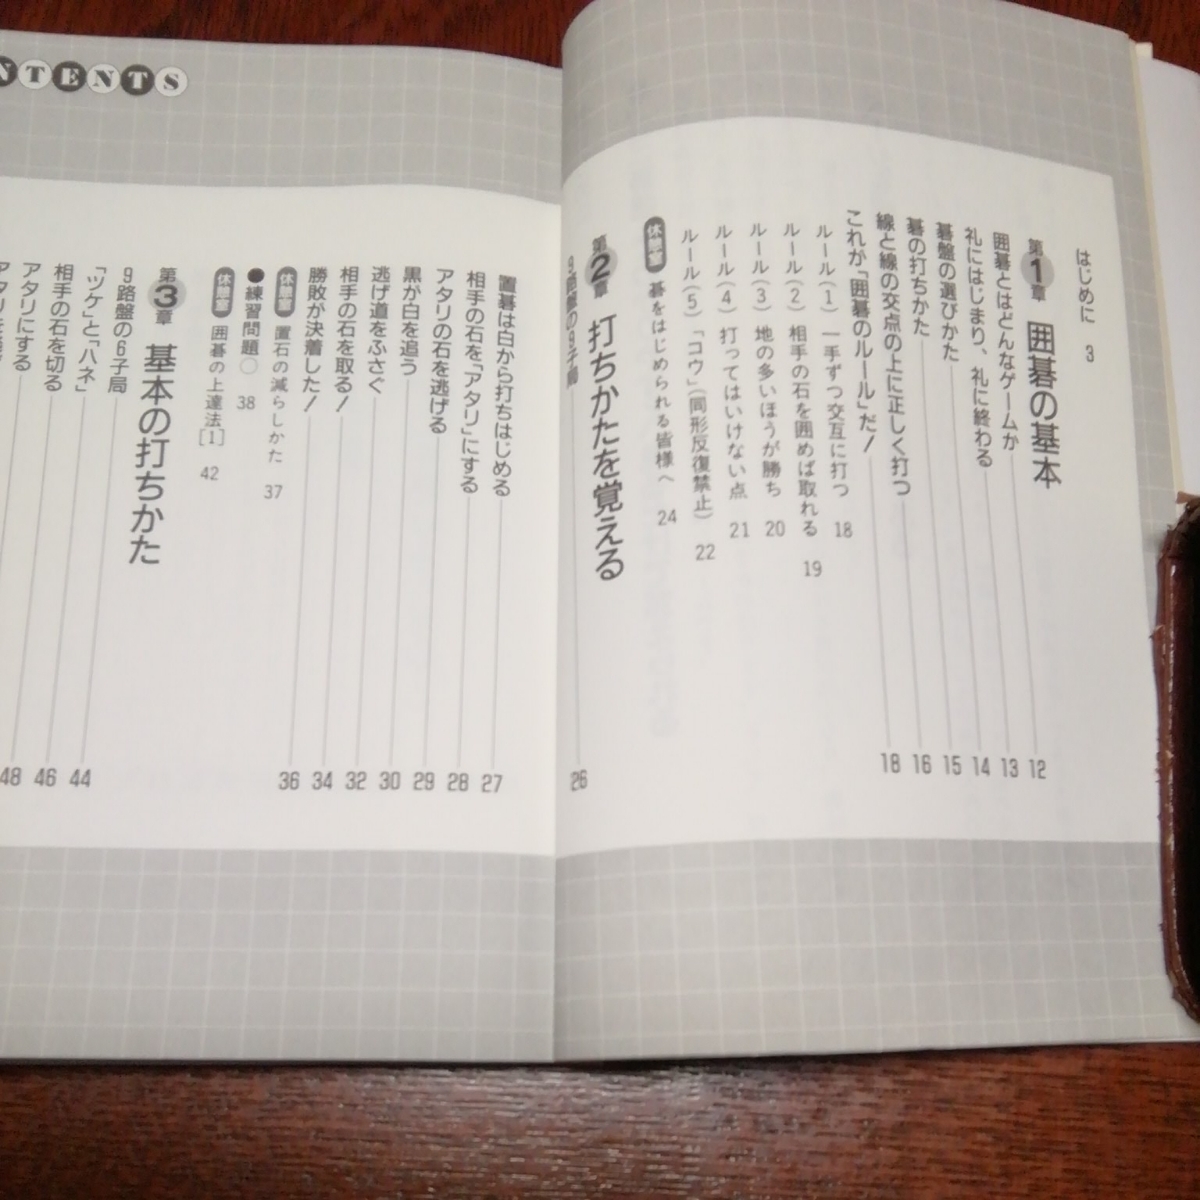 はじめに 3
第1章 囲碁の基本
囲碁とはどんなゲームか 12
礼にはじまり、礼に終わる 13
碁盤の選びかた 14
碁の打ちかた 15
線と線の交点の上に正しく打つ 16
これが「囲碁のルール」だ! 18
ルール(1) 一手ずつ交互に打つ 18
ルール(2) 相手の石を囲めば取れる 19
ルール(3) 地の多いほうが勝ち 20
ルール(4) 打ってはいけない点 21
ルール(5) 「コウ」(同形反復禁止) 22
休憩室 碁をはじめられる皆様へ 24
第2章 打ちかたを覚える
9路盤の9子局 26
CONTENTS
置碁は白から打ちはじめる 27
相手の石を「アタリ」にする 28
アタリの石を逃げる 29
黒が白を追う 30
逃げ道をふさぐ 32
相手の石を取る! 34
勝敗が決着した! 36
休憩室 置石の減らしかた 37
●練習問題○ 38
休憩室 囲碁の上達法[1] 42
第3章 基本の打ちかた
9路盤の6子局 44
「ツケ」と「ハネ」 46
相手の石を切る 48
アタリにする